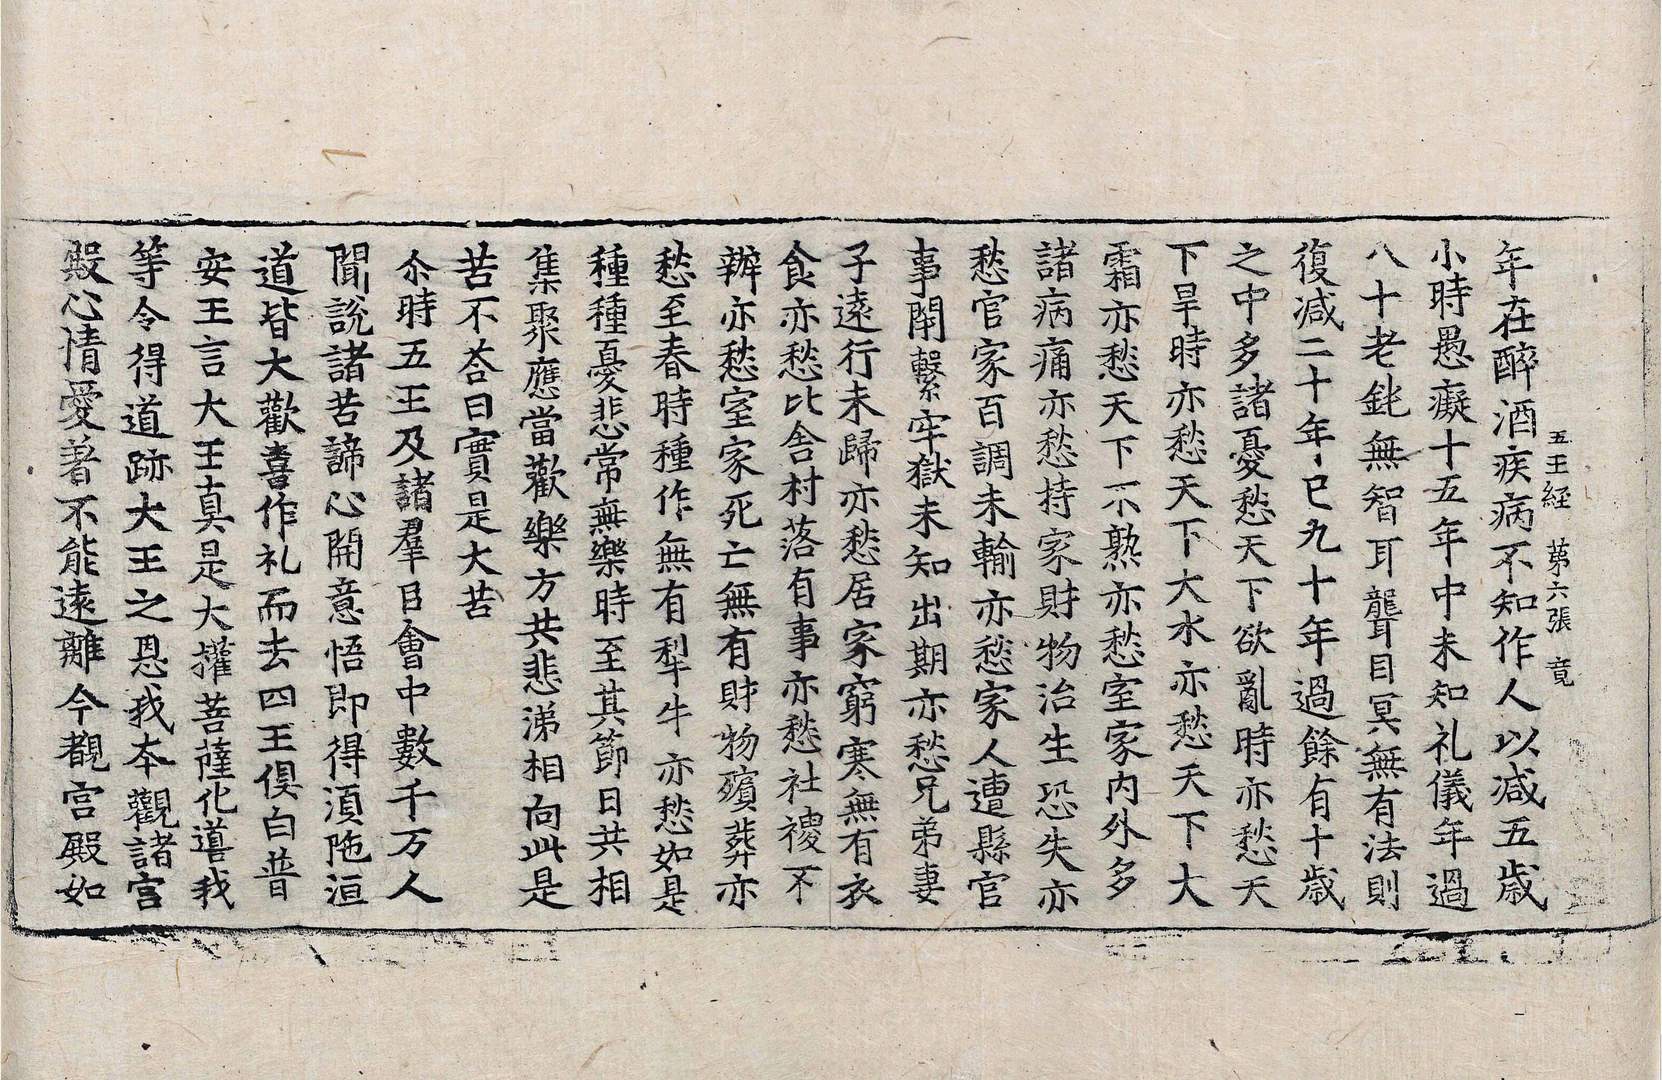 五王経 第六張 竟
年在醉酒疾病不知作人以减五歳
小時愚癡十五年中未知礼儀年過
八十老鈍無智耳聾目冥無有法則
復减二十年已九十年過餘有十歳
之中多諸憂愁天下欲亂時亦愁天
下旱時亦愁天下大水亦愁天下大
霜亦愁天下不熟亦愁室家內外多
諸病痛亦愁持家財物治生恐失亦
愁官家百調未輸亦愁家人遭縣官
事閇繫牢獄未知出期亦愁兄弟妻
子遠行未歸亦愁居家窮寒無有衣
食亦愁比舍村落有事亦愁社禝不
辦亦愁室家死亡無有財物殯葬亦
愁至春時種作無有犁牛亦愁如是
種種憂悲常無樂時至其節日共相
集聚應當歡樂方共悲涕相向此是
苦不荅曰實是大苦
尒時五王及諸羣臣會中數千万人
聞說諸苦諦心開意悟即得湏陁洹
道皆大歡喜作礼而去四王俱白普
安王言大王真是大權菩薩化導我
等令得道跡大王之恩我夲觀諸宮
殿心情愛著不能遠離今覩宮殿如